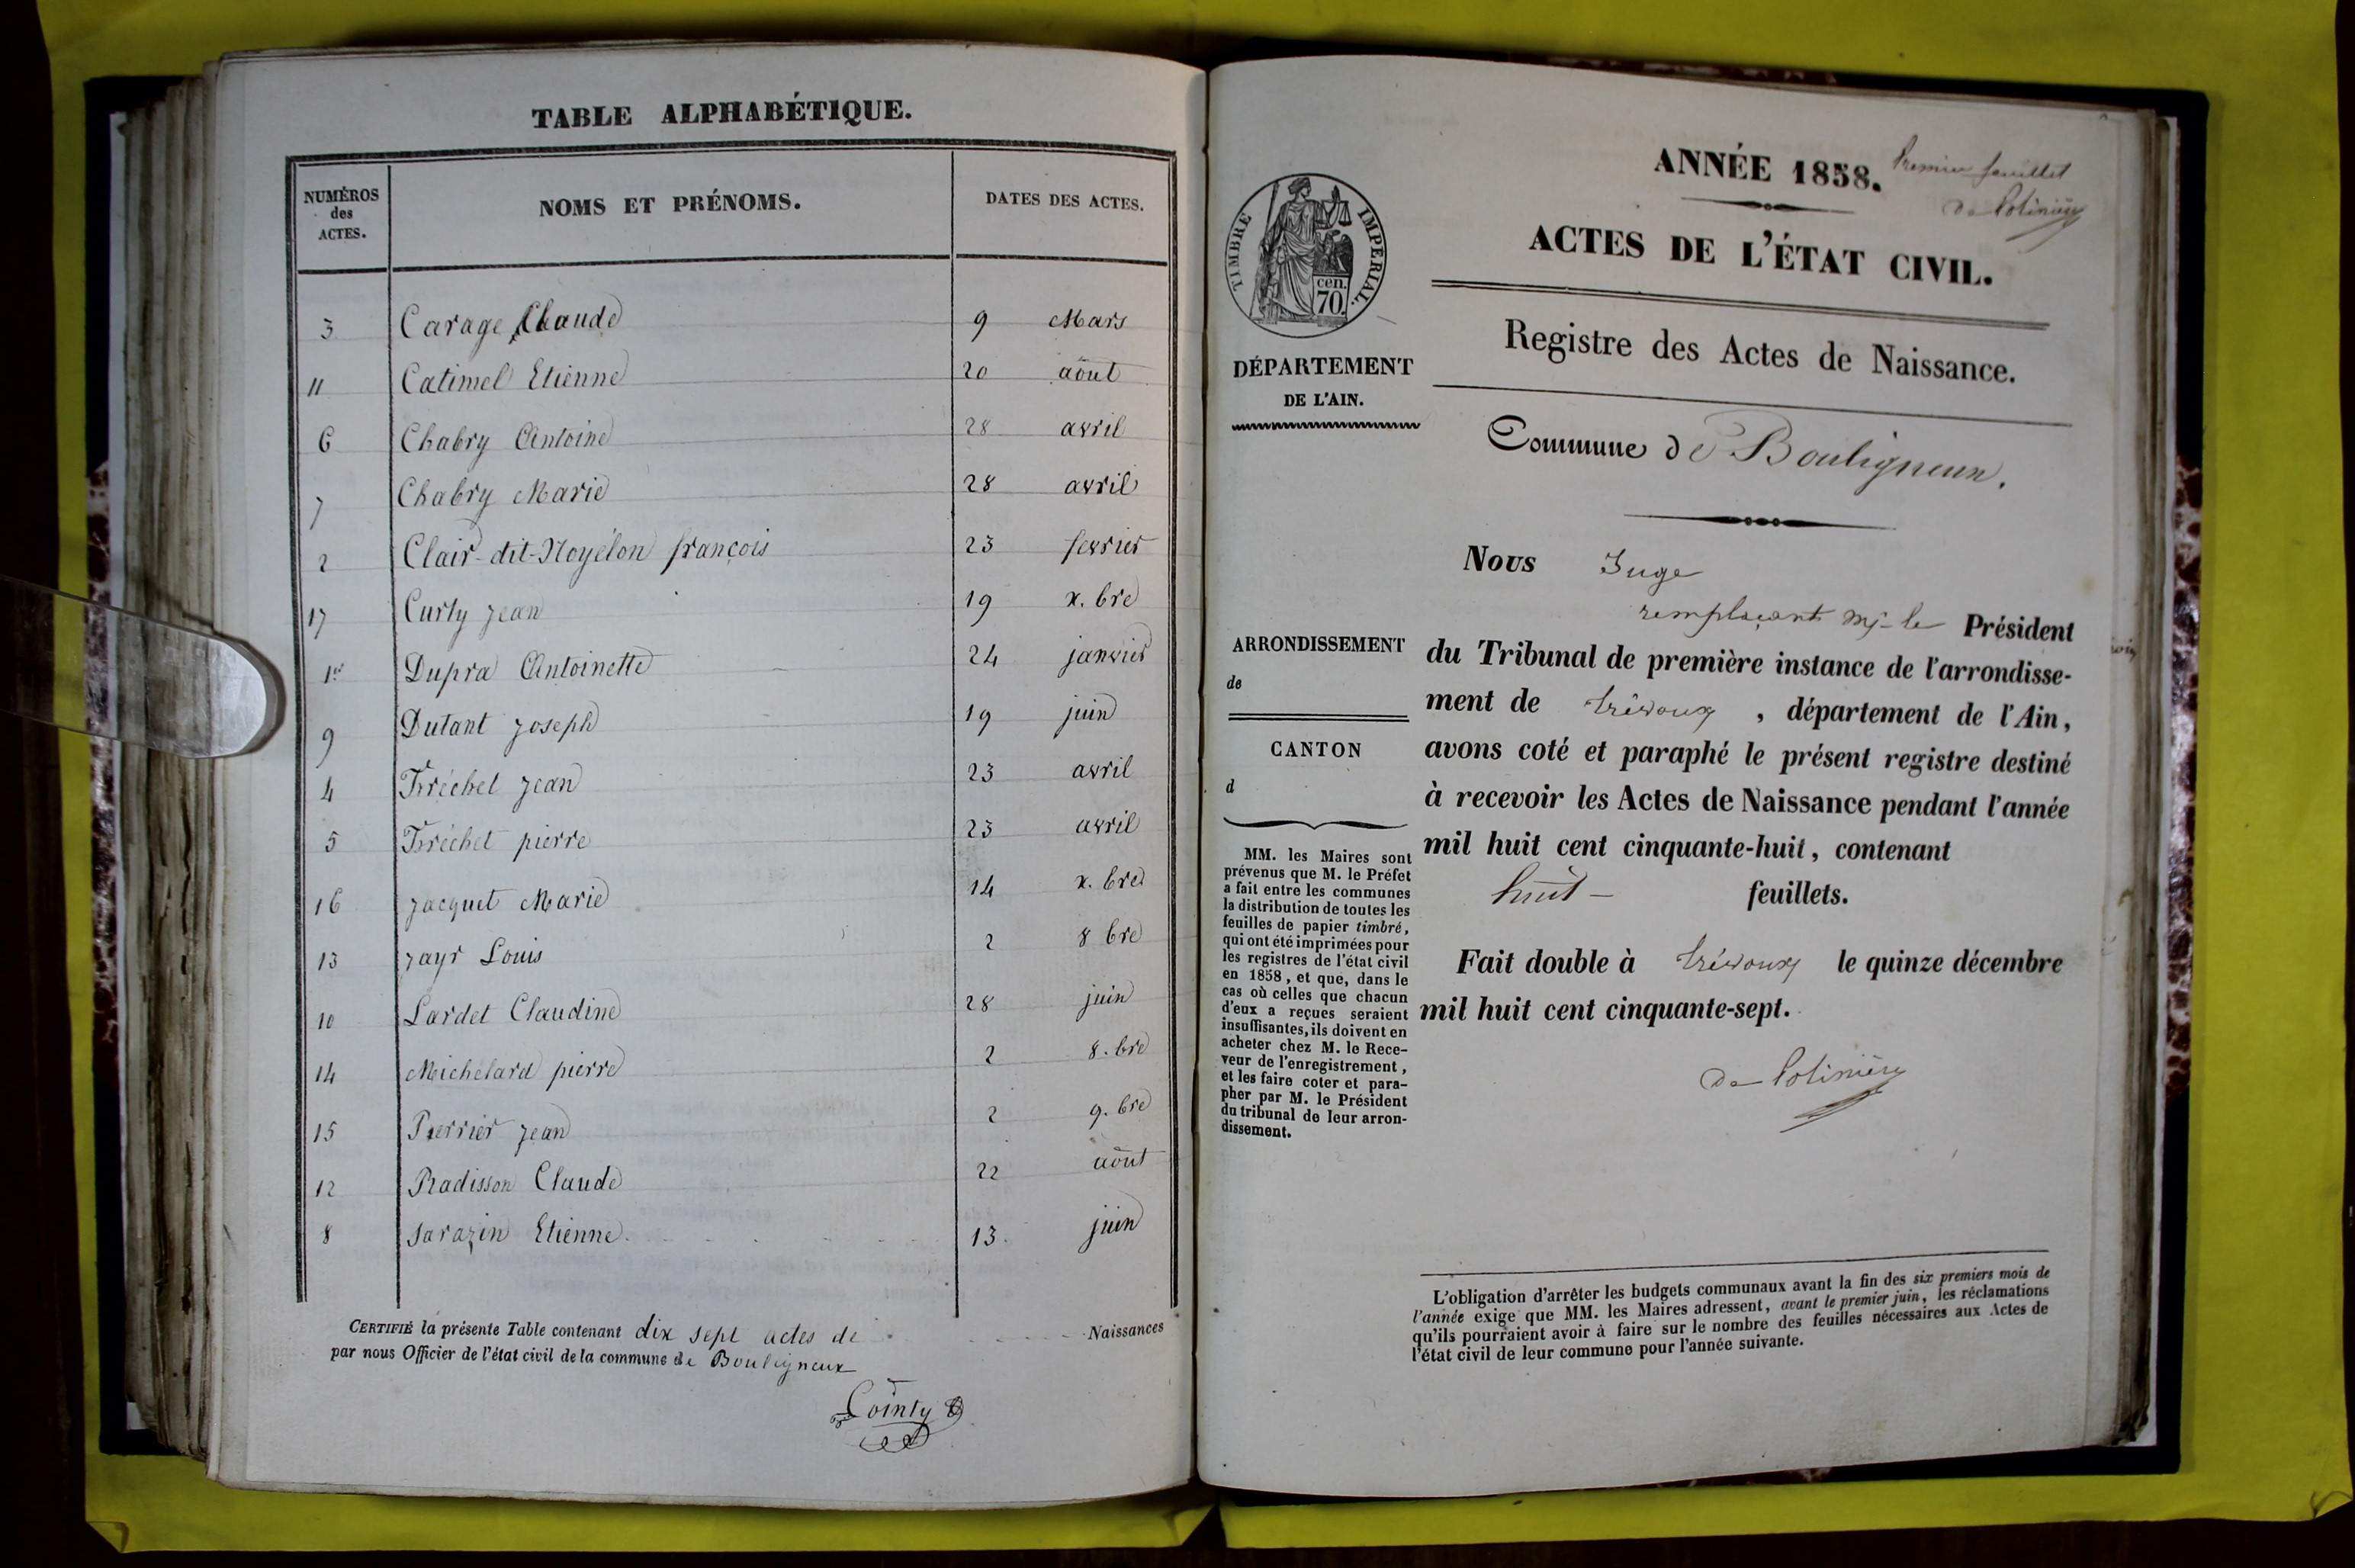 TABLE ALPHABÉTIQUE.
NUMÉROS
des
ACTES.
NOMS ET PRÉNOMS.
DATES DES ACTES.
3 Carage Claude 9 Mars
11 Catimel Etienne 20 aôut
6 Chabry Antoine 28 avril
7 Chabry Marie 28 avril
2 Clair-dit-Noyélon françois 23 fevrier
17 Curty jean 19 x. bre
1er Dupra Antoinette 24 janvier
9 Dutant joseph 19 juin
4 Fréchet jean 23 avril
5 Fréchet pierre 23 avril
16 jacquet Marie 14 x. bre
13 jayr Louis 2 8 bre
10 Lardet Claudine 28 juin
14 Michélard pierre 2 8. bre
15 Perrier jean 2 9. bre
12 Radisson Claude 22 aôut
8 Sarazin Etienne 13. juin
CERTIFIÉ la présente Table contenant dix sept actes de Naissances
par nous Officier de l'état civil de la commune de Bouligneux
Cointy
ANNÉE 1858.
Premier feuillet
de Polinière
ACTES DE L'ÉTAT CIVIL.
TIMBRE IMPÉRIAL.
cen.
70.
Registre des Actes de Naissance.
DÉPARTEMENT
DE L'AIN.
Commune de Bouligneux.
Nous Juge
remplaçant Mr le Président
ARRONDISSEMENT
de
CANTON
d
du Tribunal de première instance de l'arrondisse-
ment de Trévoux, département de l'Ain,
avons coté et paraphé le présent registre destiné
à recevoir les Actes de Naissance pendant l'année
mil huit cent cinquante-huit, contenant
huit feuillets.
Fait double à Trévoux le quinze décembre
mil huit cent cinquante-sept.
de Polinière
MM. les Maires sont
prévenus que M. le Préfet
a fait entre les communes
la distribution de toutes les
feuilles de papier timbré,
qui ont été imprimées pour
les registres de l'état civil
en 1858, et que, dans le
cas où celles que chacun
d'eux a reçues seraient
insuffisantes, ils doivent en
acheter chez M. le Rece-
veur de l'enregistrement,
et les faire coter et para-
pher par M. le Président
du tribunal de leur arron-
dissement.
L'obligation d'arrêter les budgets communaux avant la fin des six premiers mois de
l'année exige que MM. les Maires adressent, avant le premier juin, les réclamations
qu'ils pourraient avoir à faire sur le nombre des feuilles nécessaires aux Actes de
l'état civil de leur commune pour l'année suivante.